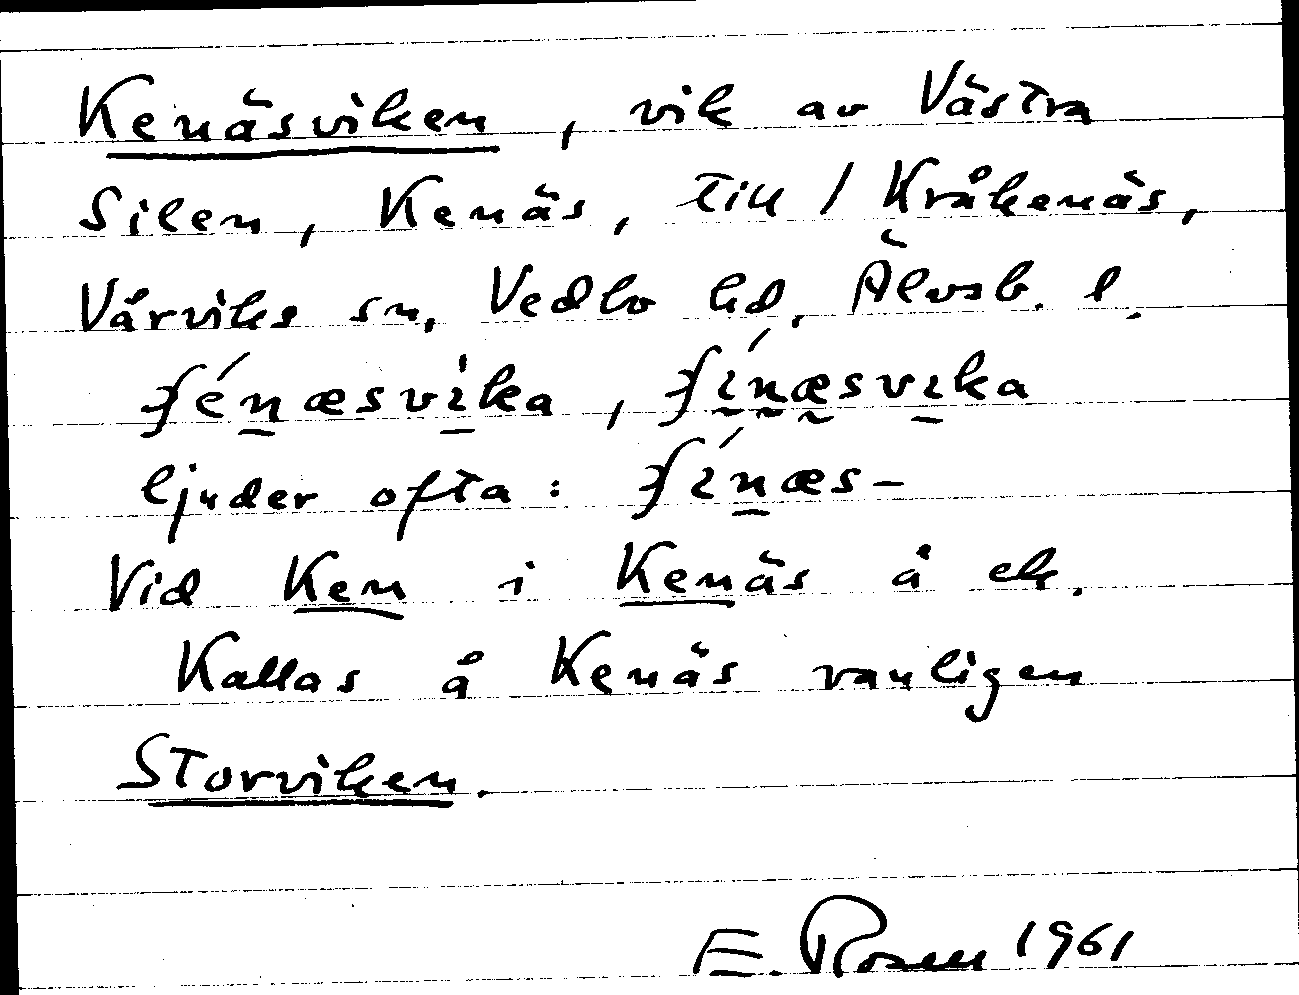 Kenäsviken, vik av Västra
Silen, Kenäs, till / Kråkenäs,
Vårviks sn, Vedbo hd, Älvsb. l.
ʄénæsvìka, ʄínæsvıka
ljuder ofta: ʄínæs-
Vid Ken i Kenäs å ek.
Kallas å Kenäs vanligen
Storviken.
E. Rosen 1961